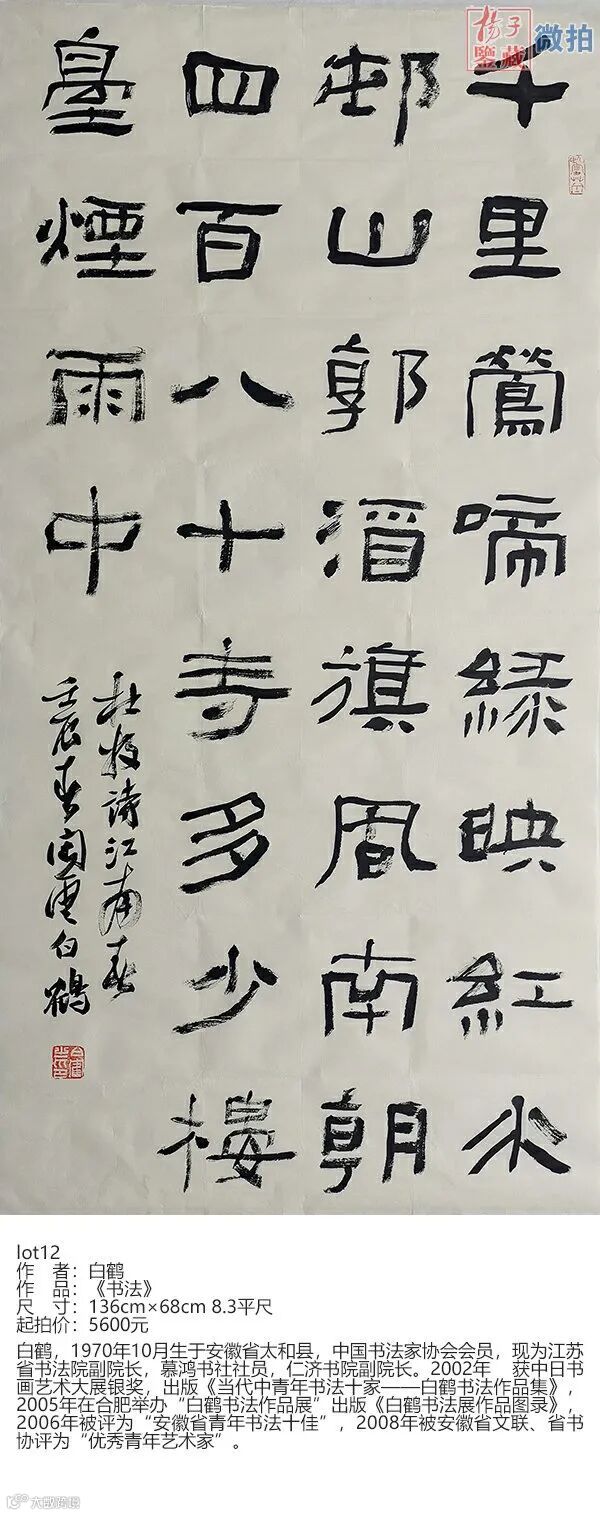 揚子
鑒藏
微拍
千里鶯啼綠映紅水
邨山郭酒旗風南朝
四百八十寺多少樓
臺煙雨中
杜牧詩江南春
壬辰春 白鶴
lot12
作 者：白鹤
作 品：《书法》
尺 寸：136cm×68cm 8.3平尺
起拍价：5600元
白鹤，1970年10月生于安徽省太和县，中国书法家协会会员，现为江苏
省书法院副院长，慕鸿书社社员，仁济书院副院长。2002年 获中日书
画艺术大展银奖，出版《当代中青年书法十家——白鹤书法作品集》，
2005年在合肥举办“白鹤书法作品展”出版《白鹤书法展作品图录》，
2006年被评为“安徽省青年书法十佳”，2008年被安徽省文联、省书
协评为“优秀青年艺术家”。
大数跨境